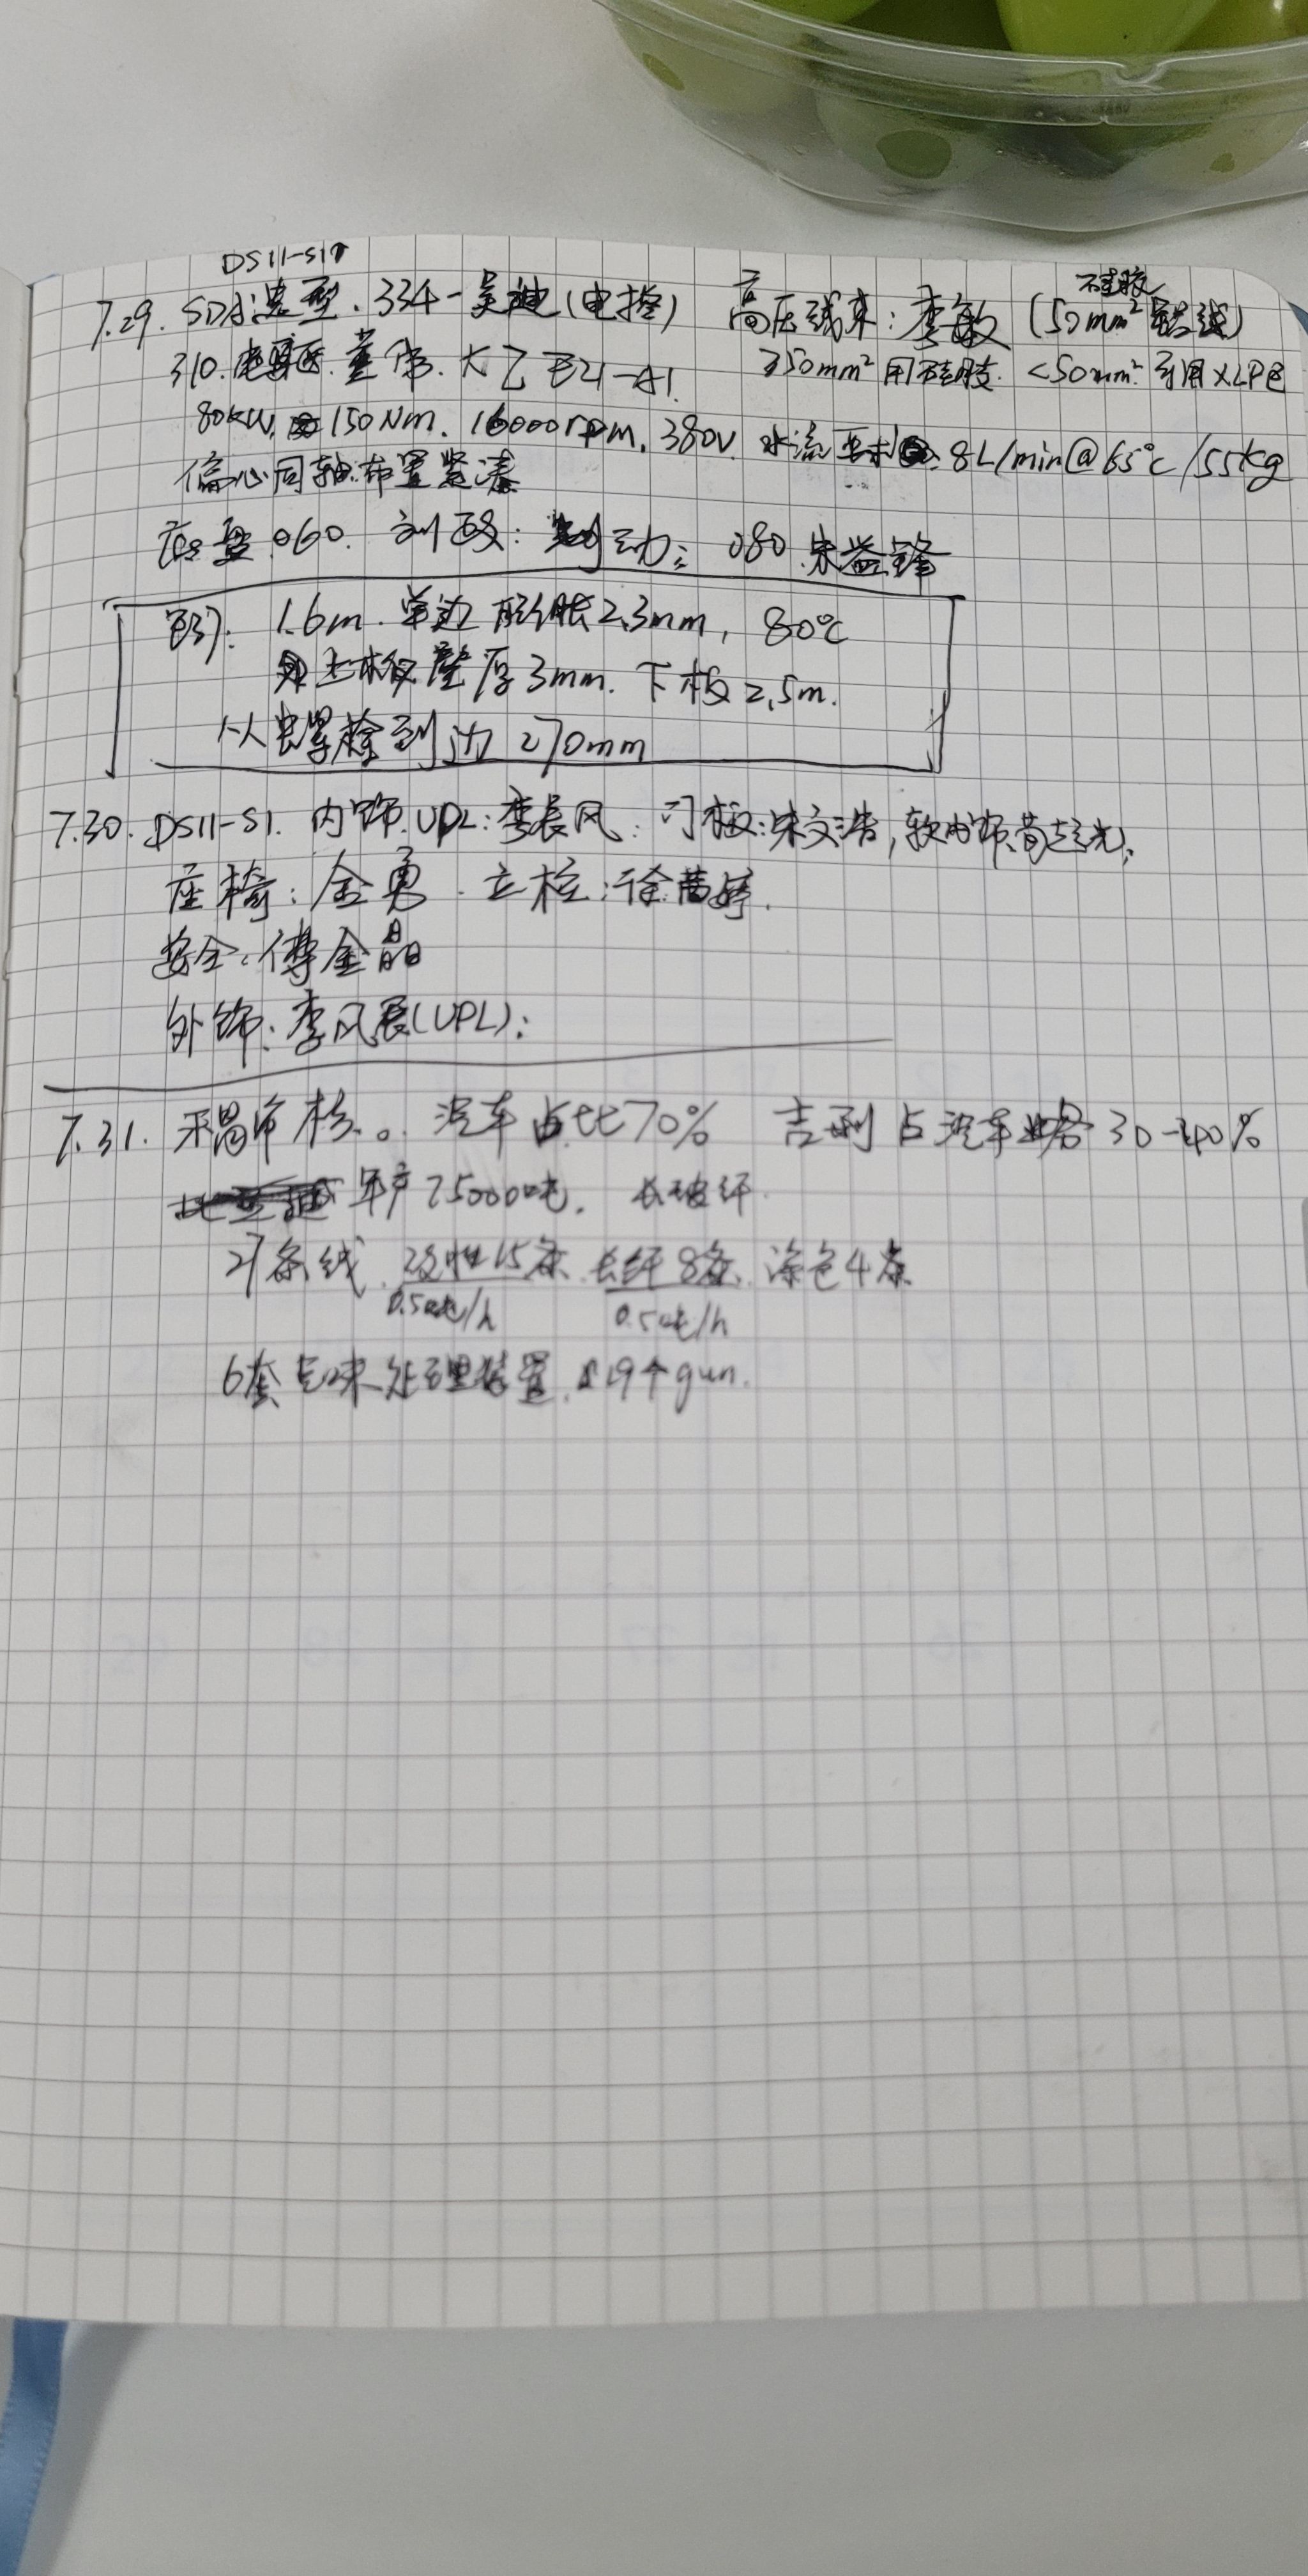 DS11-S1
7.29. SDA选型. 334-吴迪(电控) 高压线束: 李敏 (50mm² 铝线) 不硅胶
310. 电驱. 董帝. 大乙 E21-A1. ≥50mm² 用硅胶. <50mm² 可用XLPE
80kW, 150Nm. 16000rpm, 380V. 水流要求 8L/min@65℃/55kg
偏心同轴布置紧凑
底盘 060. 刘 : 制动: 080 朱益锋
1.6m. 单边膨胀2.3mm, 80℃
上板壁厚3mm. 下板2.5m.
从 螺栓到边 270mm
7.30. DS11-S1. 内饰. UPL: 李长风: 门板: 文浩, 软内饰: 黄
座椅: 金勇. 立柱: 徐茜婷.
安全: 傅金晶
外饰: 李风展(UPL):
7.31. 禾昌审核. 汽车占比70% 吉利占汽车业务 30-40%
年产75000吨. 长玻纤.
27条线. 改性15条. 长纤8条. 染色4条
0.5吨/h 0.5吨/h
6套气味处理装置. 19个gun.